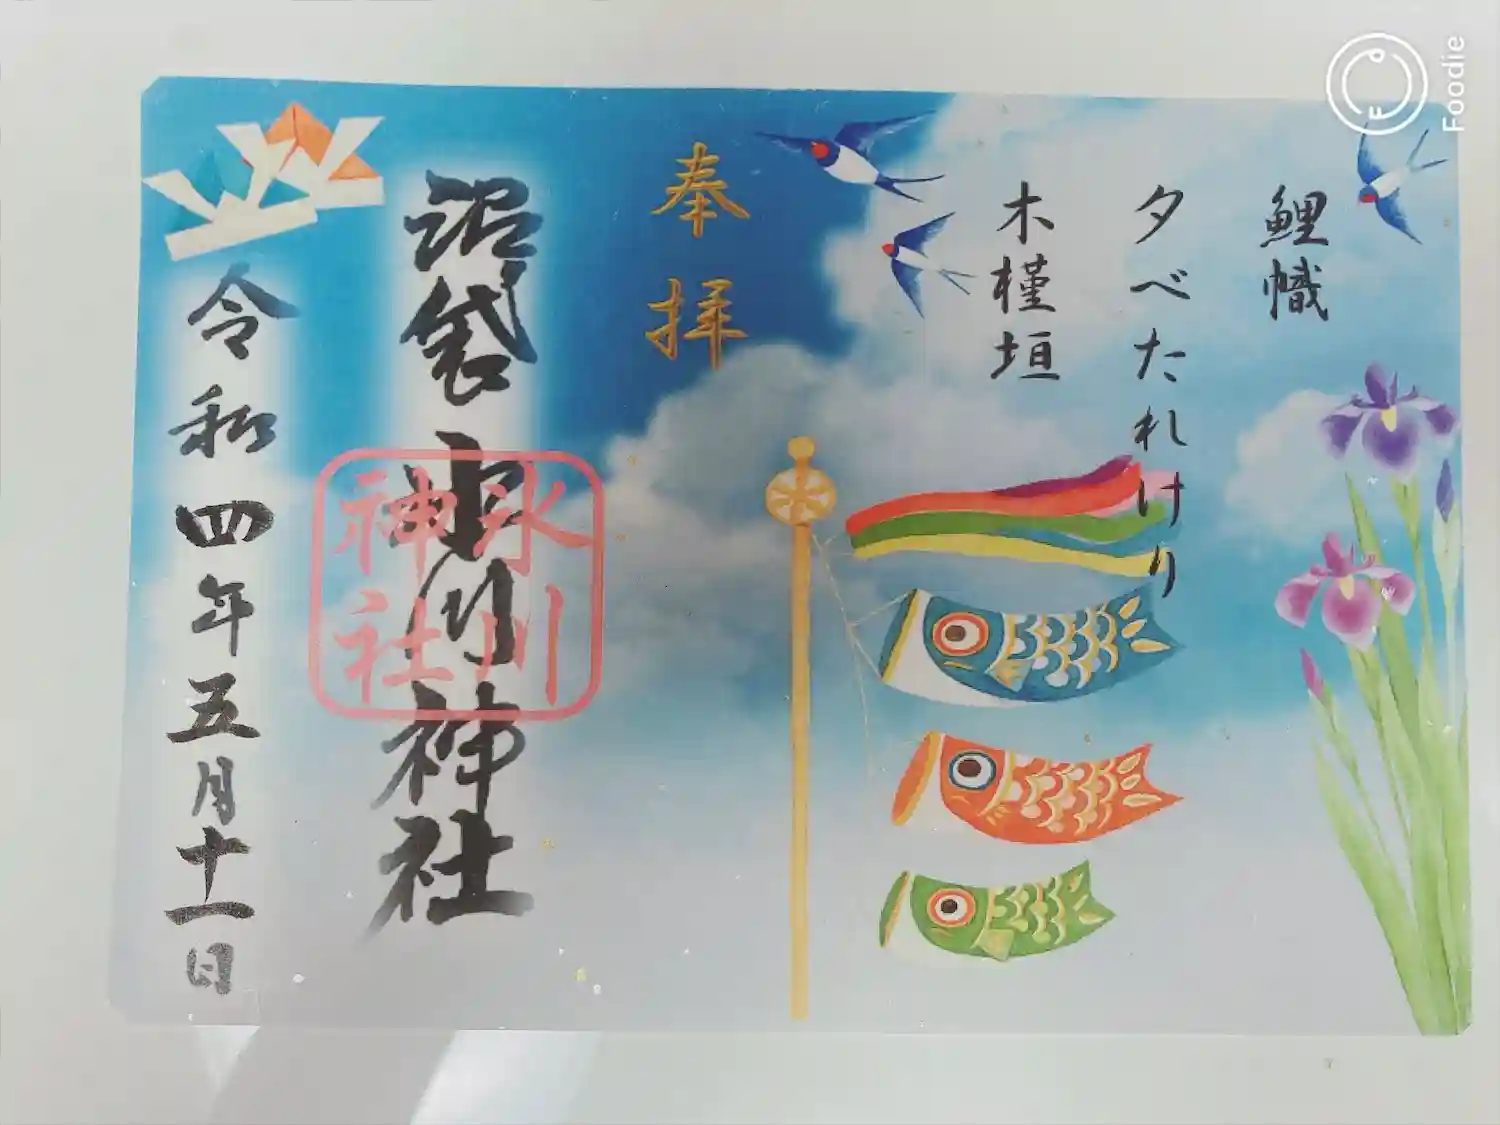 鯉幟
夕べたれけり
木槿垣
奉拝
沼袋氷川神社
氷川
神社
令和四年五月十一日
Foodie